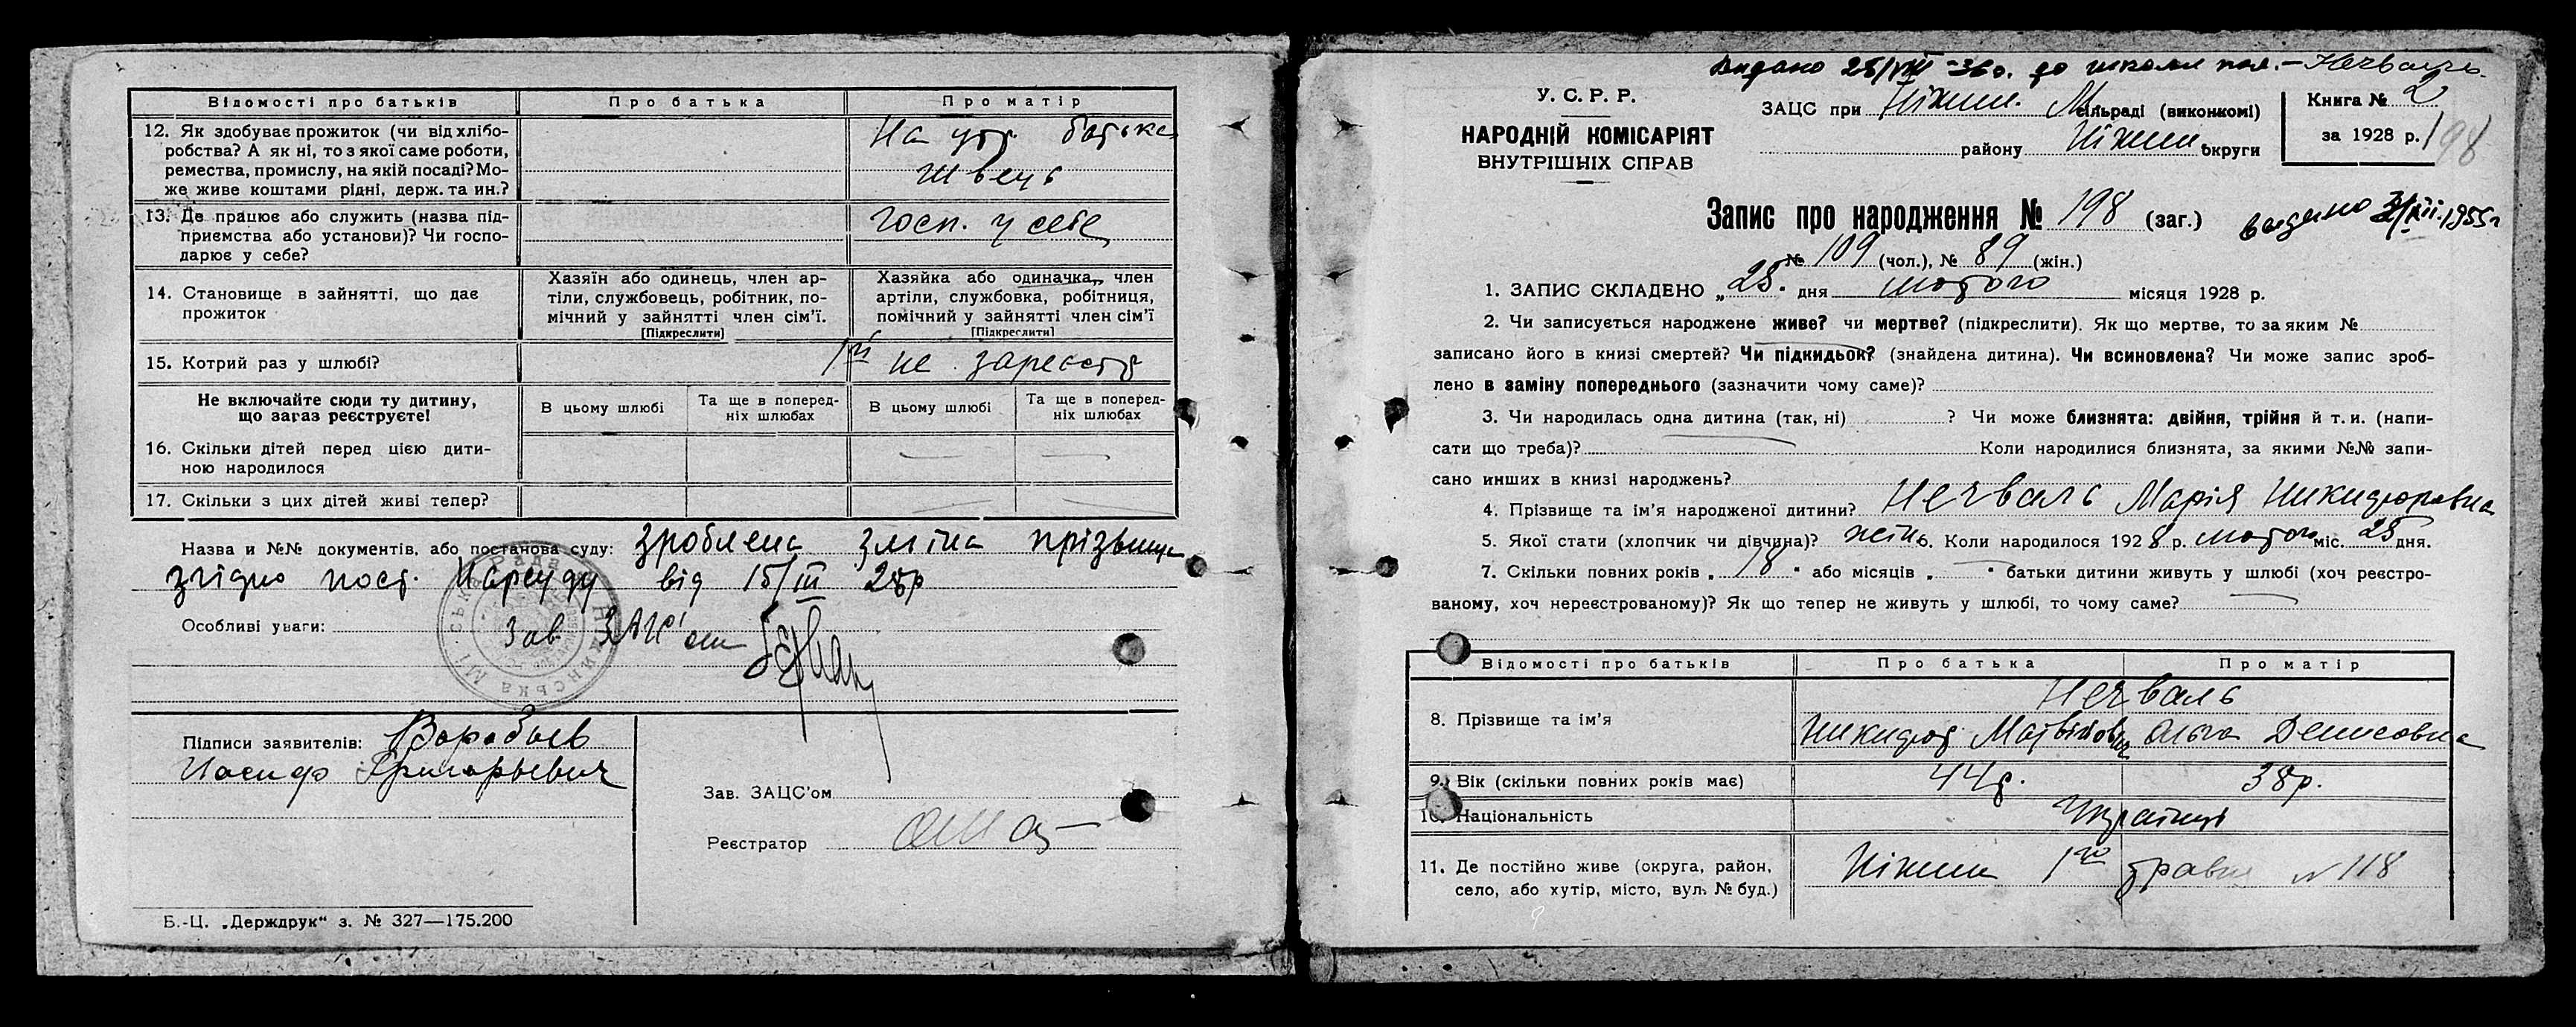 Відомості про батьків
Про батька
Про матір
12. Як здобуває прожиток (чи від хлібо-
робства? А як ні, то з якої саме роботи,
ремества, промислу, на якій посаді? Мо-
же живе коштами рідні, держ. та ин.?
На утр. батька
швець
13. Де працює або служить (назва під-
приємства або установи)? Чи госпо-
дарює у себе?
госп. у себе
14. Становище в зайнятті, що дає
прожиток
Хазяїн або одинець, член ар-
тіли, службовець, робітник, по-
мічний у зайнятті член сім'ї.
[Підкреслити]
Хазяйка або одиначка, член
артіли, службовка, робітниця,
помічний у зайнятті член сім'ї
[Підкреслити]
15. Котрий раз у шлюбі?
1й не зареєстр
Не включайте сюди ту дитину,
що загаз реєструєте!
В цьому шлюбі
Та ще в поперед-
ніх шлюбах
В цьому шлюбі
Та ще в поперед-
ніх шлюбах
16. Скільки дітей перед цією дити-
ною народилося
17. Скільки з цих дітей живі тепер?
Назва и №№ документів, або постанова суду: зроблена зміна прізвища
згідно пост. Нарсуду від 15/III 28р
Особливі уваги:
Зав. ЗАЦС'ом
Підписи заявителів: Воробьев
Иосиф Григорьевич
Зав. ЗАЦС'ом
Реєстратор
Б.-Ц. „Держдрук“ з. № 327—175.200
Видано 25/VIII-36р. до школи пол. – Нечваль.
У. С. Р. Р.
НАРОДНІЙ КОМІСАРІЯТ
ВНУТРІШНІХ СПРАВ
ЗАЦС при Ніжин. М. сільраді (виконкомі)
району Ніжин. округи
Книга № 2
за 1928 р. 198
Запис про народження № 198 (заг.)
видано 1955г
№ 109 (чол.), № 89 (жін.)
1. ЗАПИС СКЛАДЕНО „28. дня лютого місяця 1928 р.
2. Чи записується народжене живе? чи мертве? (підкреслити). Як що мертве, то за яким №
записано його в книзі смертей? Чи підкидьок? (знайдена дитина). Чи всиновлена? Чи може запис зроб-
лено в заміну попереднього (зазначити чому саме)?
3. Чи народилась одна дитина (так, ні) ? Чи може близнята: двійня, трійня й т. и. (напи-
сати що треба)? Коли народилися близнята, за якими №№ запи-
сано инших в книзі народжень?
4. Прізвище та ім'я народженої дитини? Нечваль Марія Никифоровна
5. Якої стати (хлопчик чи дівчина)? жін. 6. Коли народилося 1928 р. лютого міс. 25 дня.
7. Скільки повних років „ 18 “ або місяців „ “ батьки дитини живуть у шлюбі (хоч реєстро-
ваному, хоч нереєстрованому)? Як що тепер не живуть у шлюбі, то чому саме?
Відомості про батьків
Про батька
Про матір
8. Прізвище та ім'я
Нечваль
Никифор Матвійович Ольга Денисовна
9. Вік (скільки повних років має)
44р.
38р.
10. Національність
Українці
11. Де постійно живе (округа, район,
село, або хутір, місто, вул. № буд.)
Ніжин 1го травня № 118